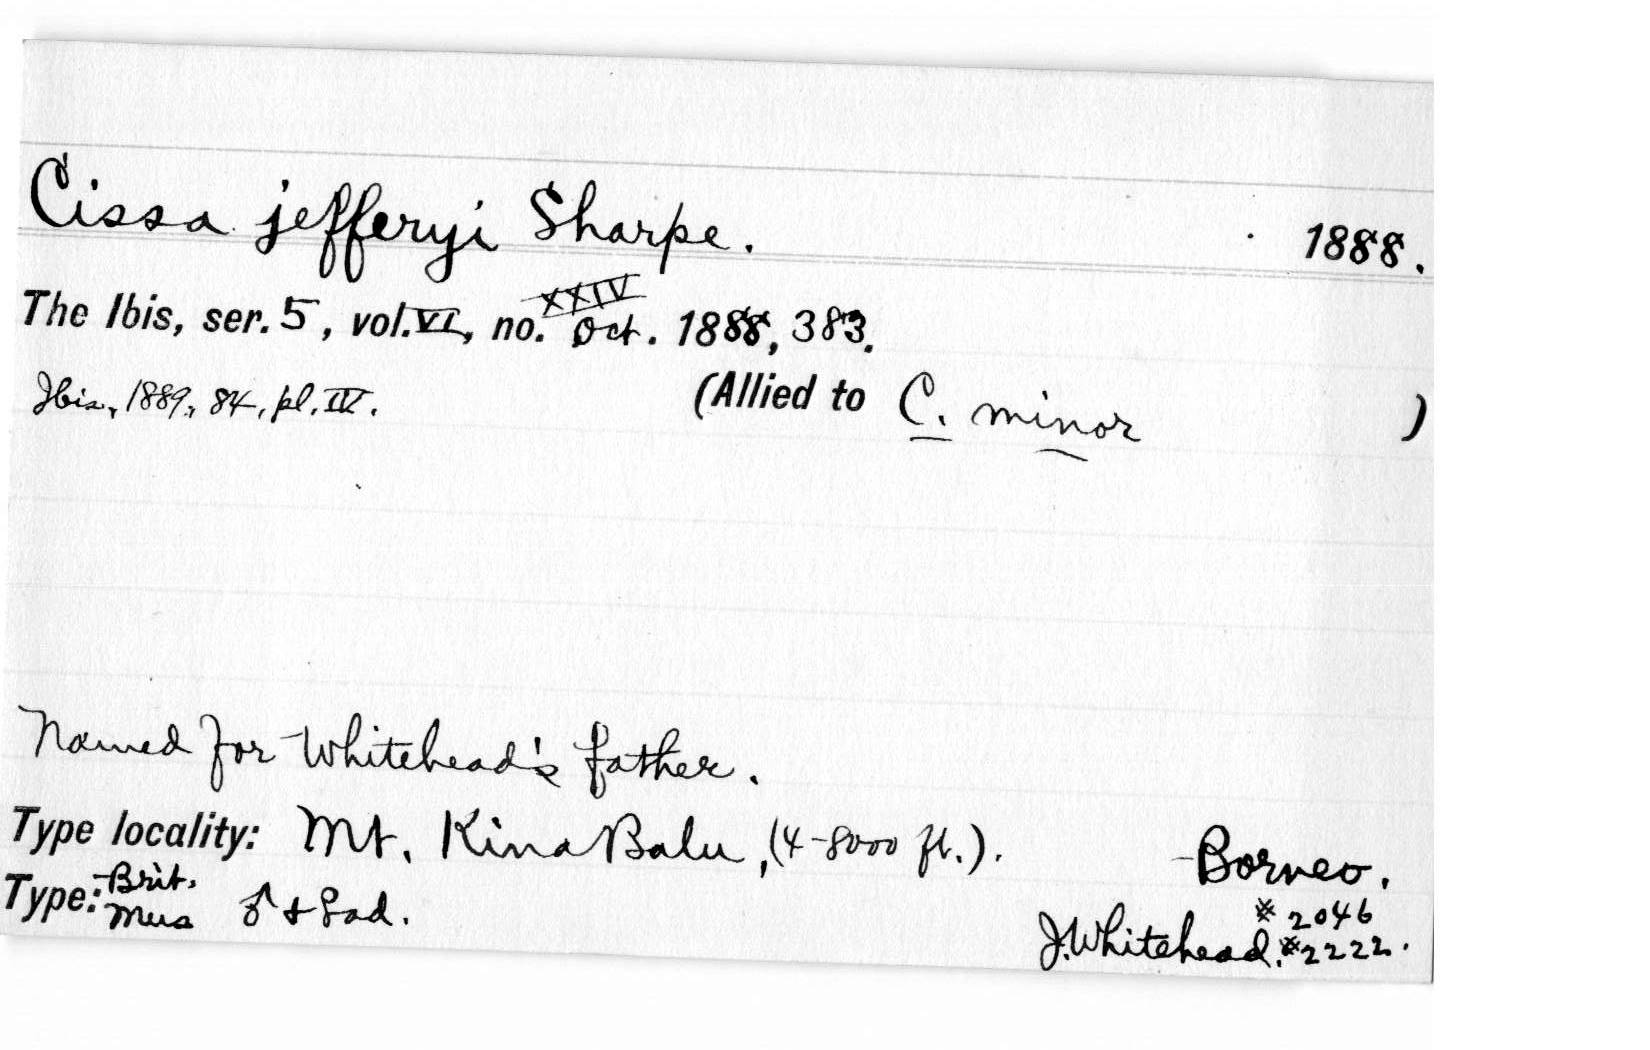 Cissa jefferyi Sharpe. 1888.
The Ibis, ser. 5, vol. VI, no. XXIV Oct. 1888, 383.
Ibis, 1889, 84, pl. IV. (Allied to C. minor )
Named for Whitehead's father.
Type locality: Mt. Kina Balu, (4-8000 ft.). Borneo.
Type: Brit. Mus ♂ + ♀ ad. J. Whitehead. #2046 #2222.